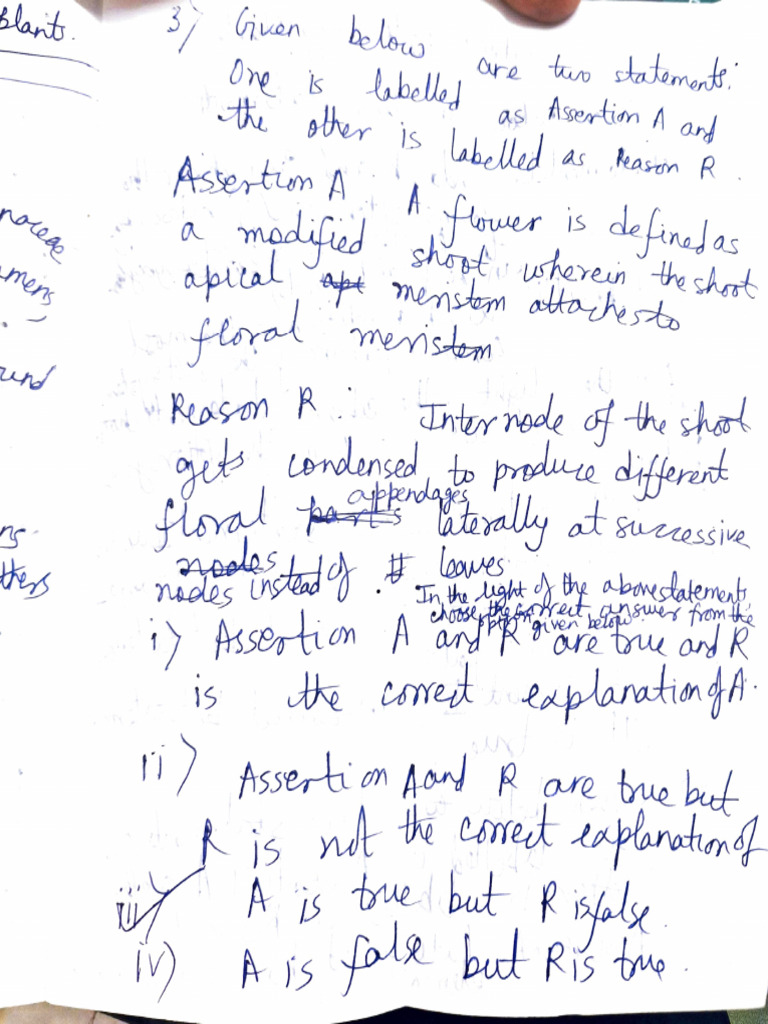 plants.
3) Given below are two statements:
One is labelled as Assertion A and
the other is labelled as Reason R.
Assertion A A flower is defined as
a modified shoot wherein the shoot
apical apt meristem attaches to
floral meristem
Reason R : Internode of the shoot
gets condensed to produce different
appendages
floral parts laterally at successive
nodes
nodes instead of leaves
In the light of the above statements,
choose the correct answer from the
option given below.
i) Assertion A and R are true and R
is the correct explanation of A.
ii) Assertion A and R are true but
R is not the correct explanation of
iii) A is true but R is false.
iv) A is false but R is true.